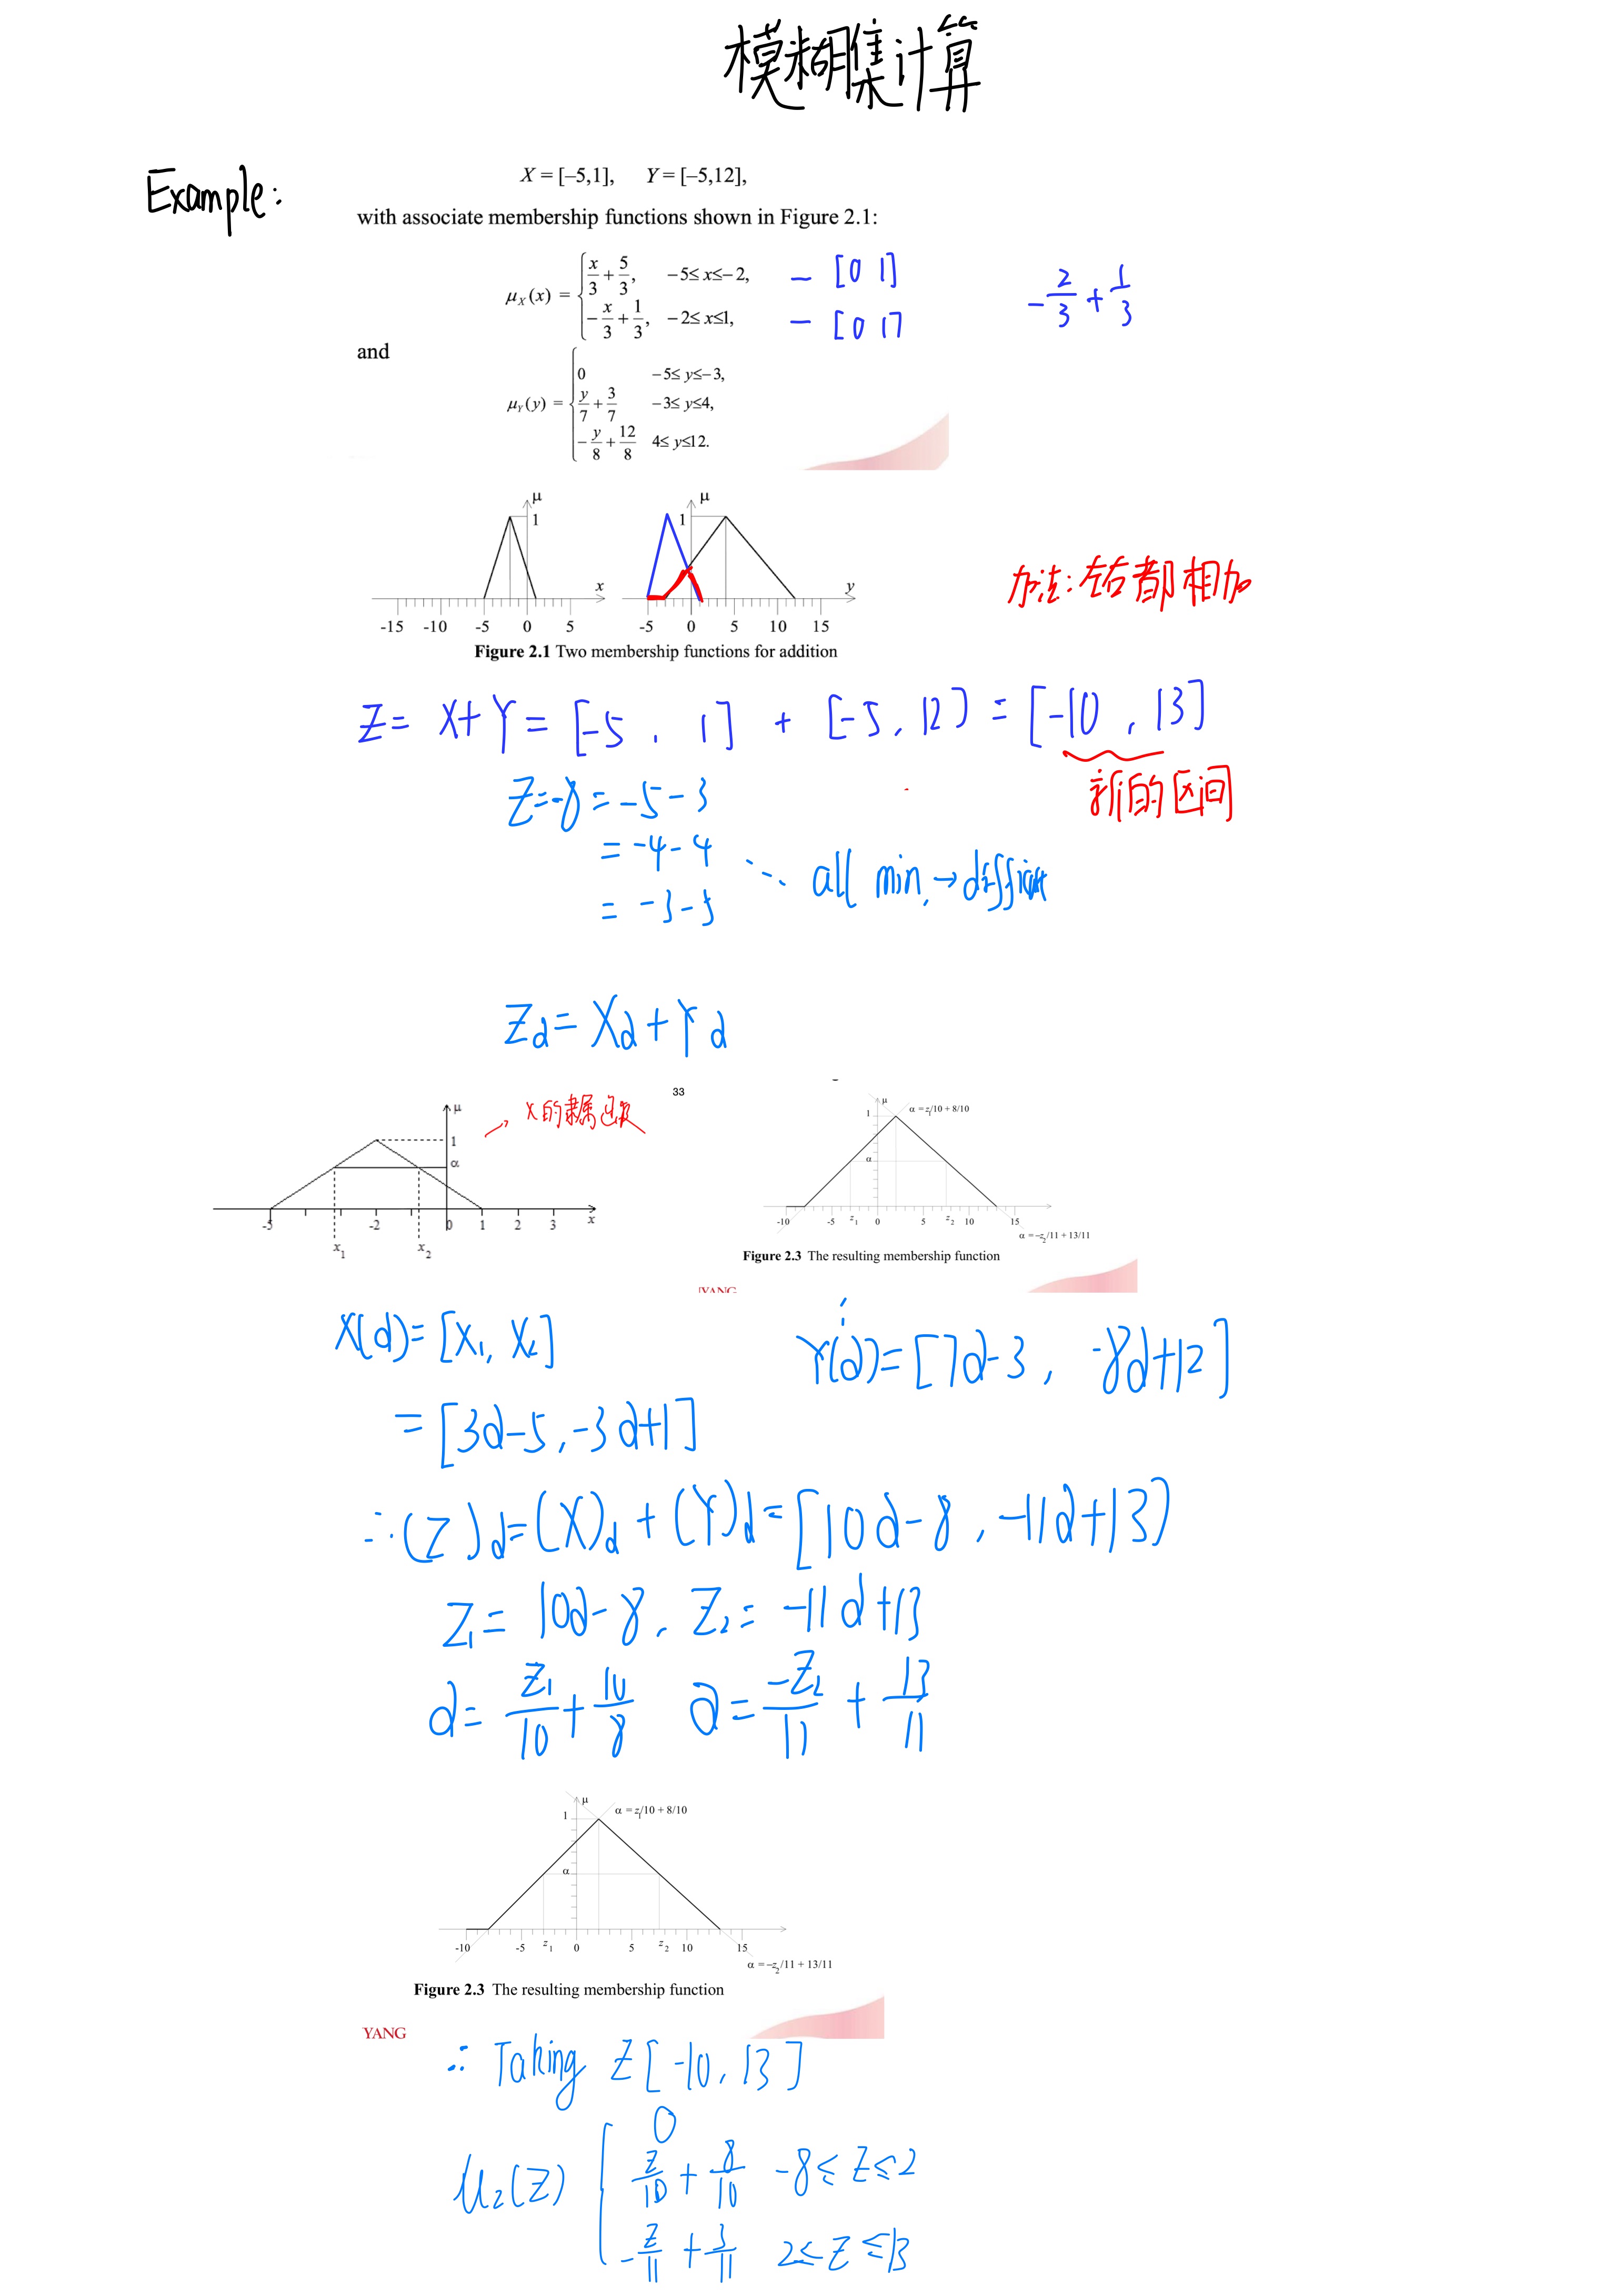 模糊集计算
Example:
X = [–5,1],   Y = [–5,12],
with associate membership functions shown in Figure 2.1:
μX(x) = { x/3 + 5/3,  −5≤ x≤−2,  – [0 1]
−x/3 + 1/3,  −2≤ x≤1,  – [0 1]
−2/3 + 1/3
and
μY(y) = { 0  −5≤ y≤−3,
y/7 + 3/7  −3≤ y≤4,
−y/8 + 12/8  4≤ y≤12.
μ 1 x -15 -10 -5 0 5
μ 1 y -5 0 5 10 15
Figure 2.1 Two membership functions for addition
加法:左右都相加
Z = X+Y = [-5, 1] + [-5, 12] = [-10, 13]
新的区间
Z=-8 = -5-3
= -4-4
= -3-5
... all min, →
Zα = Xα + Yα
33
x的隶属函数
μ 1 α -5 -2 0 1 2 3 x
x1 x2
μ 1 α α = z1/10 + 8/10
-10 -5 z1 0 5 z2 10 15
α = –z2/11 + 13/11
Figure 2.3 The resulting membership function
X(α)=[X1, X2]
Y(α)=[7α-3, -8α+12]
= [3α-5, -3α+1]
∴ (Z)α=(X)α + (Y)α=[10α-8, -11α+13)
Z1= 10α-8, Z2= -11α+13
α= Z1/10 + 10/8  α= -Z2/11 + 13/11
μ 1 α α = z1/10 + 8/10
-10 -5 z1 0 5 z2 10 15
α = –z2/11 + 13/11
Figure 2.3 The resulting membership function
YANG
∴ Taking Z[-10, 13]
μz(Z) { 0
Z/10 + 8/10  -8≤Z≤2
-Z/11 + 3/11  2≤Z≤13